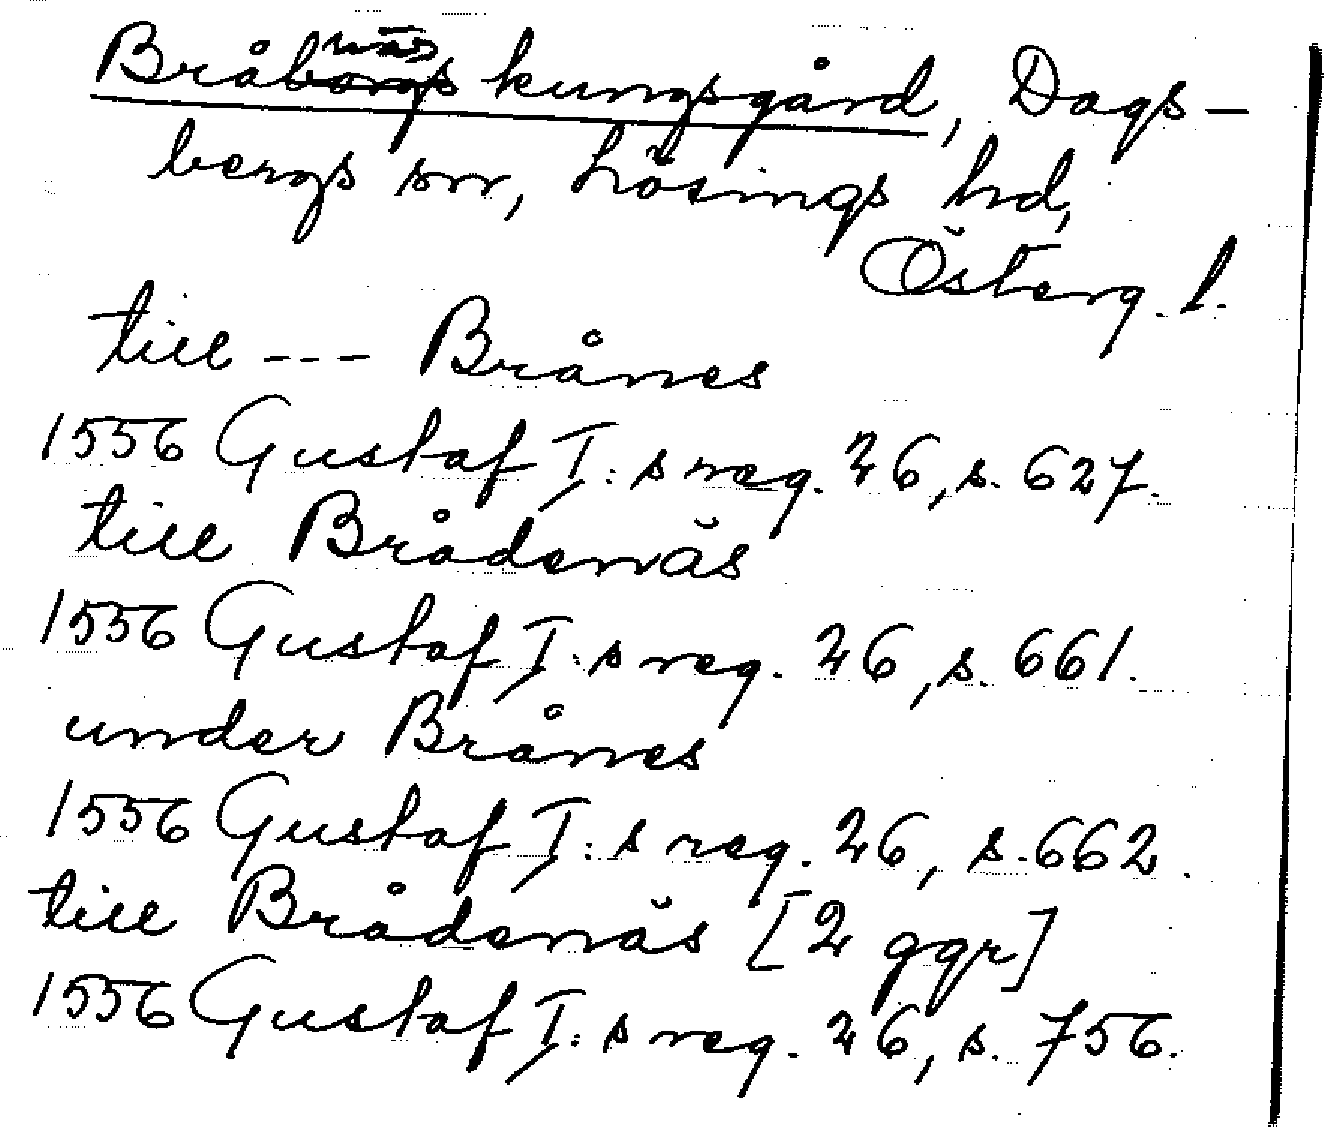 Bråborgs näs kungsgård, Dags-
bergs sn, Lösings hd,
Österg. l.
till --- Brånes
1556 Gustaf I:s reg. 26, s. 627.
till Brådenäs
1556 Gustaf I:s reg. 26, s. 661.
under Brånes
1556 Gustaf I:s reg. 26, s. 662.
till Brådenäs [2 ggr]
1556 Gustaf I:s reg. 26, s. 756.